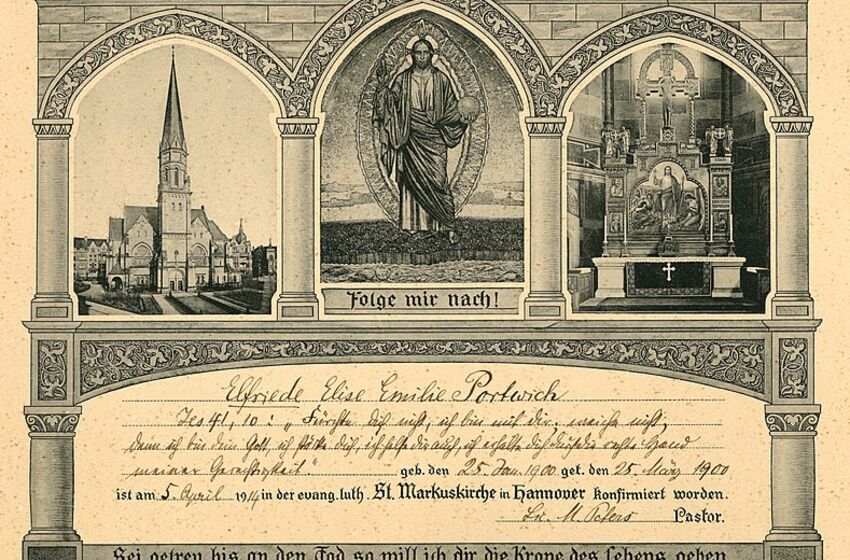 Folge mir nach!
Elfriede Elise Emilie Portwich
Jes 41, 10: „Fürchte dich nicht, ich bin mit dir, weiche nicht,
denn ich bin dein Gott, ich stärke dich, ich helfe dir auch, ich erhalte dich durch die rechte Hand
meiner Gerechtigkeit." geb. den 25. Jan. 1900 get. den 25. März 1900
ist am 5. April 1914 in der evang. luth. St. Markuskirche in Hannover konfirmiert worden.
M. Peters Pastor.
Sei getreu bis an den Tod so will ich dir die Krone des Lebens geben